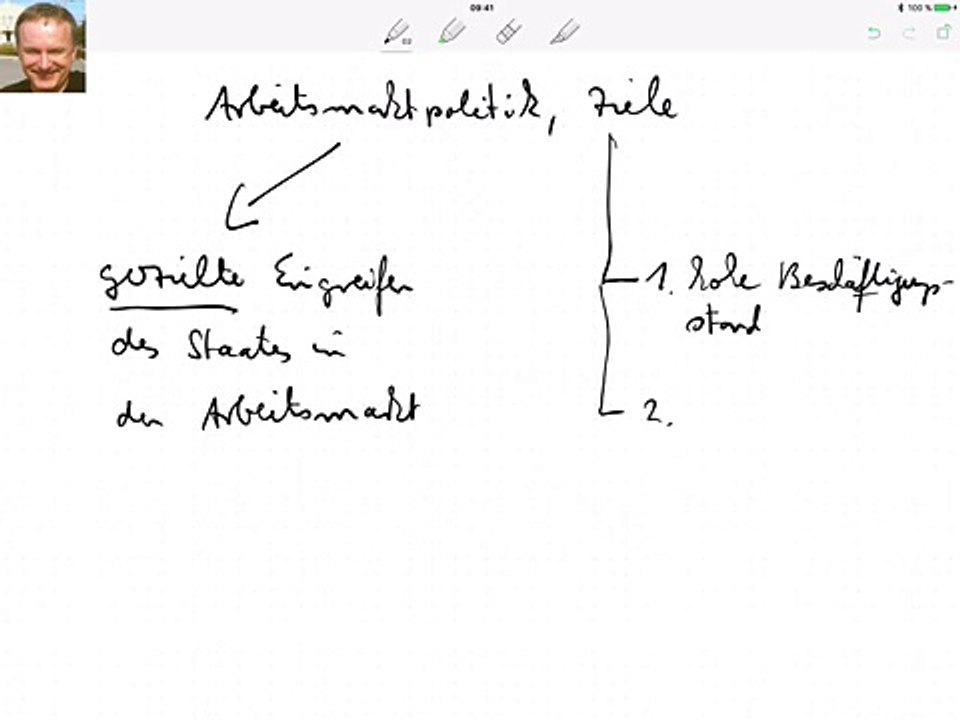 09:41
100 %
02
Arbeitsmarktpolitik, Ziele
gezielte Eingreifen
des Staates in
den Arbeitsmarkt
1. hohe Beschäftigungs-
stand
2.